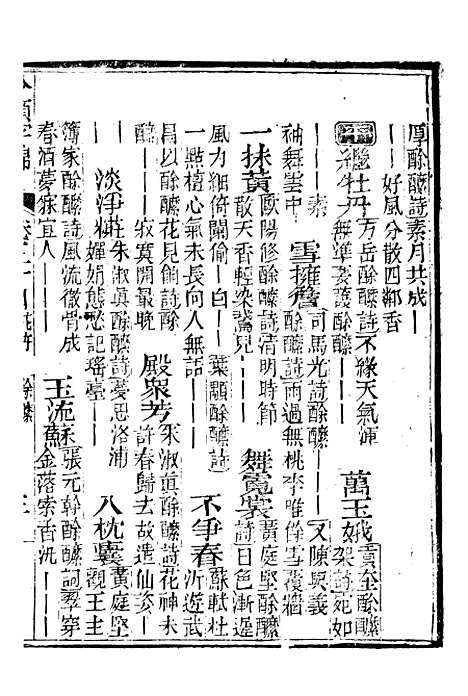 厚酴醾詩素月共成｜
｜｜好風分散四鄰香
繼牡丹方岳酴醾詩不緣天氣渾
無準要護酴醾
萬玉娥黃至酴醾
架詩宛如
｜｜｜素
雪擁簷司馬光詩酴醾
酴醾詩雨過無桃李唯餘雪覆牆
又陳與義
神舞雲中
一抹黃歐陽修酴醾詩清明時節
散天香輕染鵞兒｜｜｜
舞霓裳黃庭堅酴醾
詩日色漸遲
風力細倚闌偷｜白｜｜
一點檀心氣未長向人無語
葉顒酴醾詩
不爭春蘇軾杜
沂遊武
昌以酴醾花見餉詩酴
醾｜｜｜寂寞開最晚
殿衆芳朱淑真酴醾詩花神未
許春歸去故遣仙姿｜｜｜
淡淨粧朱淑真酴醾詩夢思洛浦
嬋娟態愁記瑤臺｜｜｜
入枕囊黃庭堅
觀王主
簿家酴醾詩風流徹骨成
春酒夢寐宜人｜｜｜
玉流蘇張元幹酴醾詞翠穿
金落索香泛｜｜｜
酴醾